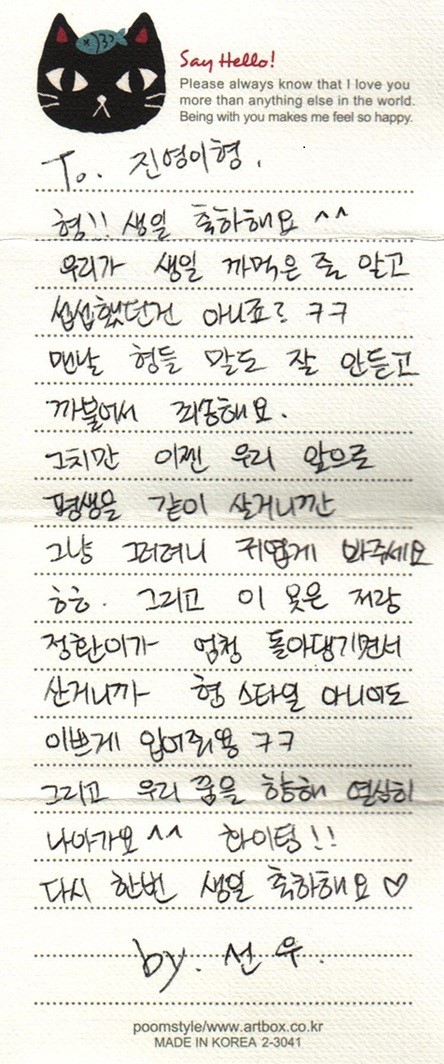 Say Hello!
Please always know that I love you
more than anything else in the world.
Being with you makes me feel so happy.
To. 진영이형.
형!! 생일 축하해요 ^^
우리가 생일 까먹은 줄 알고
섭섭했던건 아니죠? ㅋㅋ
맨날 형들 말도 잘 안듣고
까불어서 죄송해요.
그치만 이젠 우리 앞으로
평생을 같이 살거니깐
그냥 그러려니 귀엽게 봐주세요
하하. 그리고 이 옷은 저랑
정환이가 엄청 돌아댕기면서
산거니까 형 스타일 아니여도
이쁘게 입어줘용 ㅋㅋ
그리고 우리 꿈을 향해 열심히
나아가요 ^^ 화이팅!!
다시 한번 생일 축하해요 ♡
by. 선우.
poomstyle/www.artbox.co.kr
MADE IN KOREA 2-3041